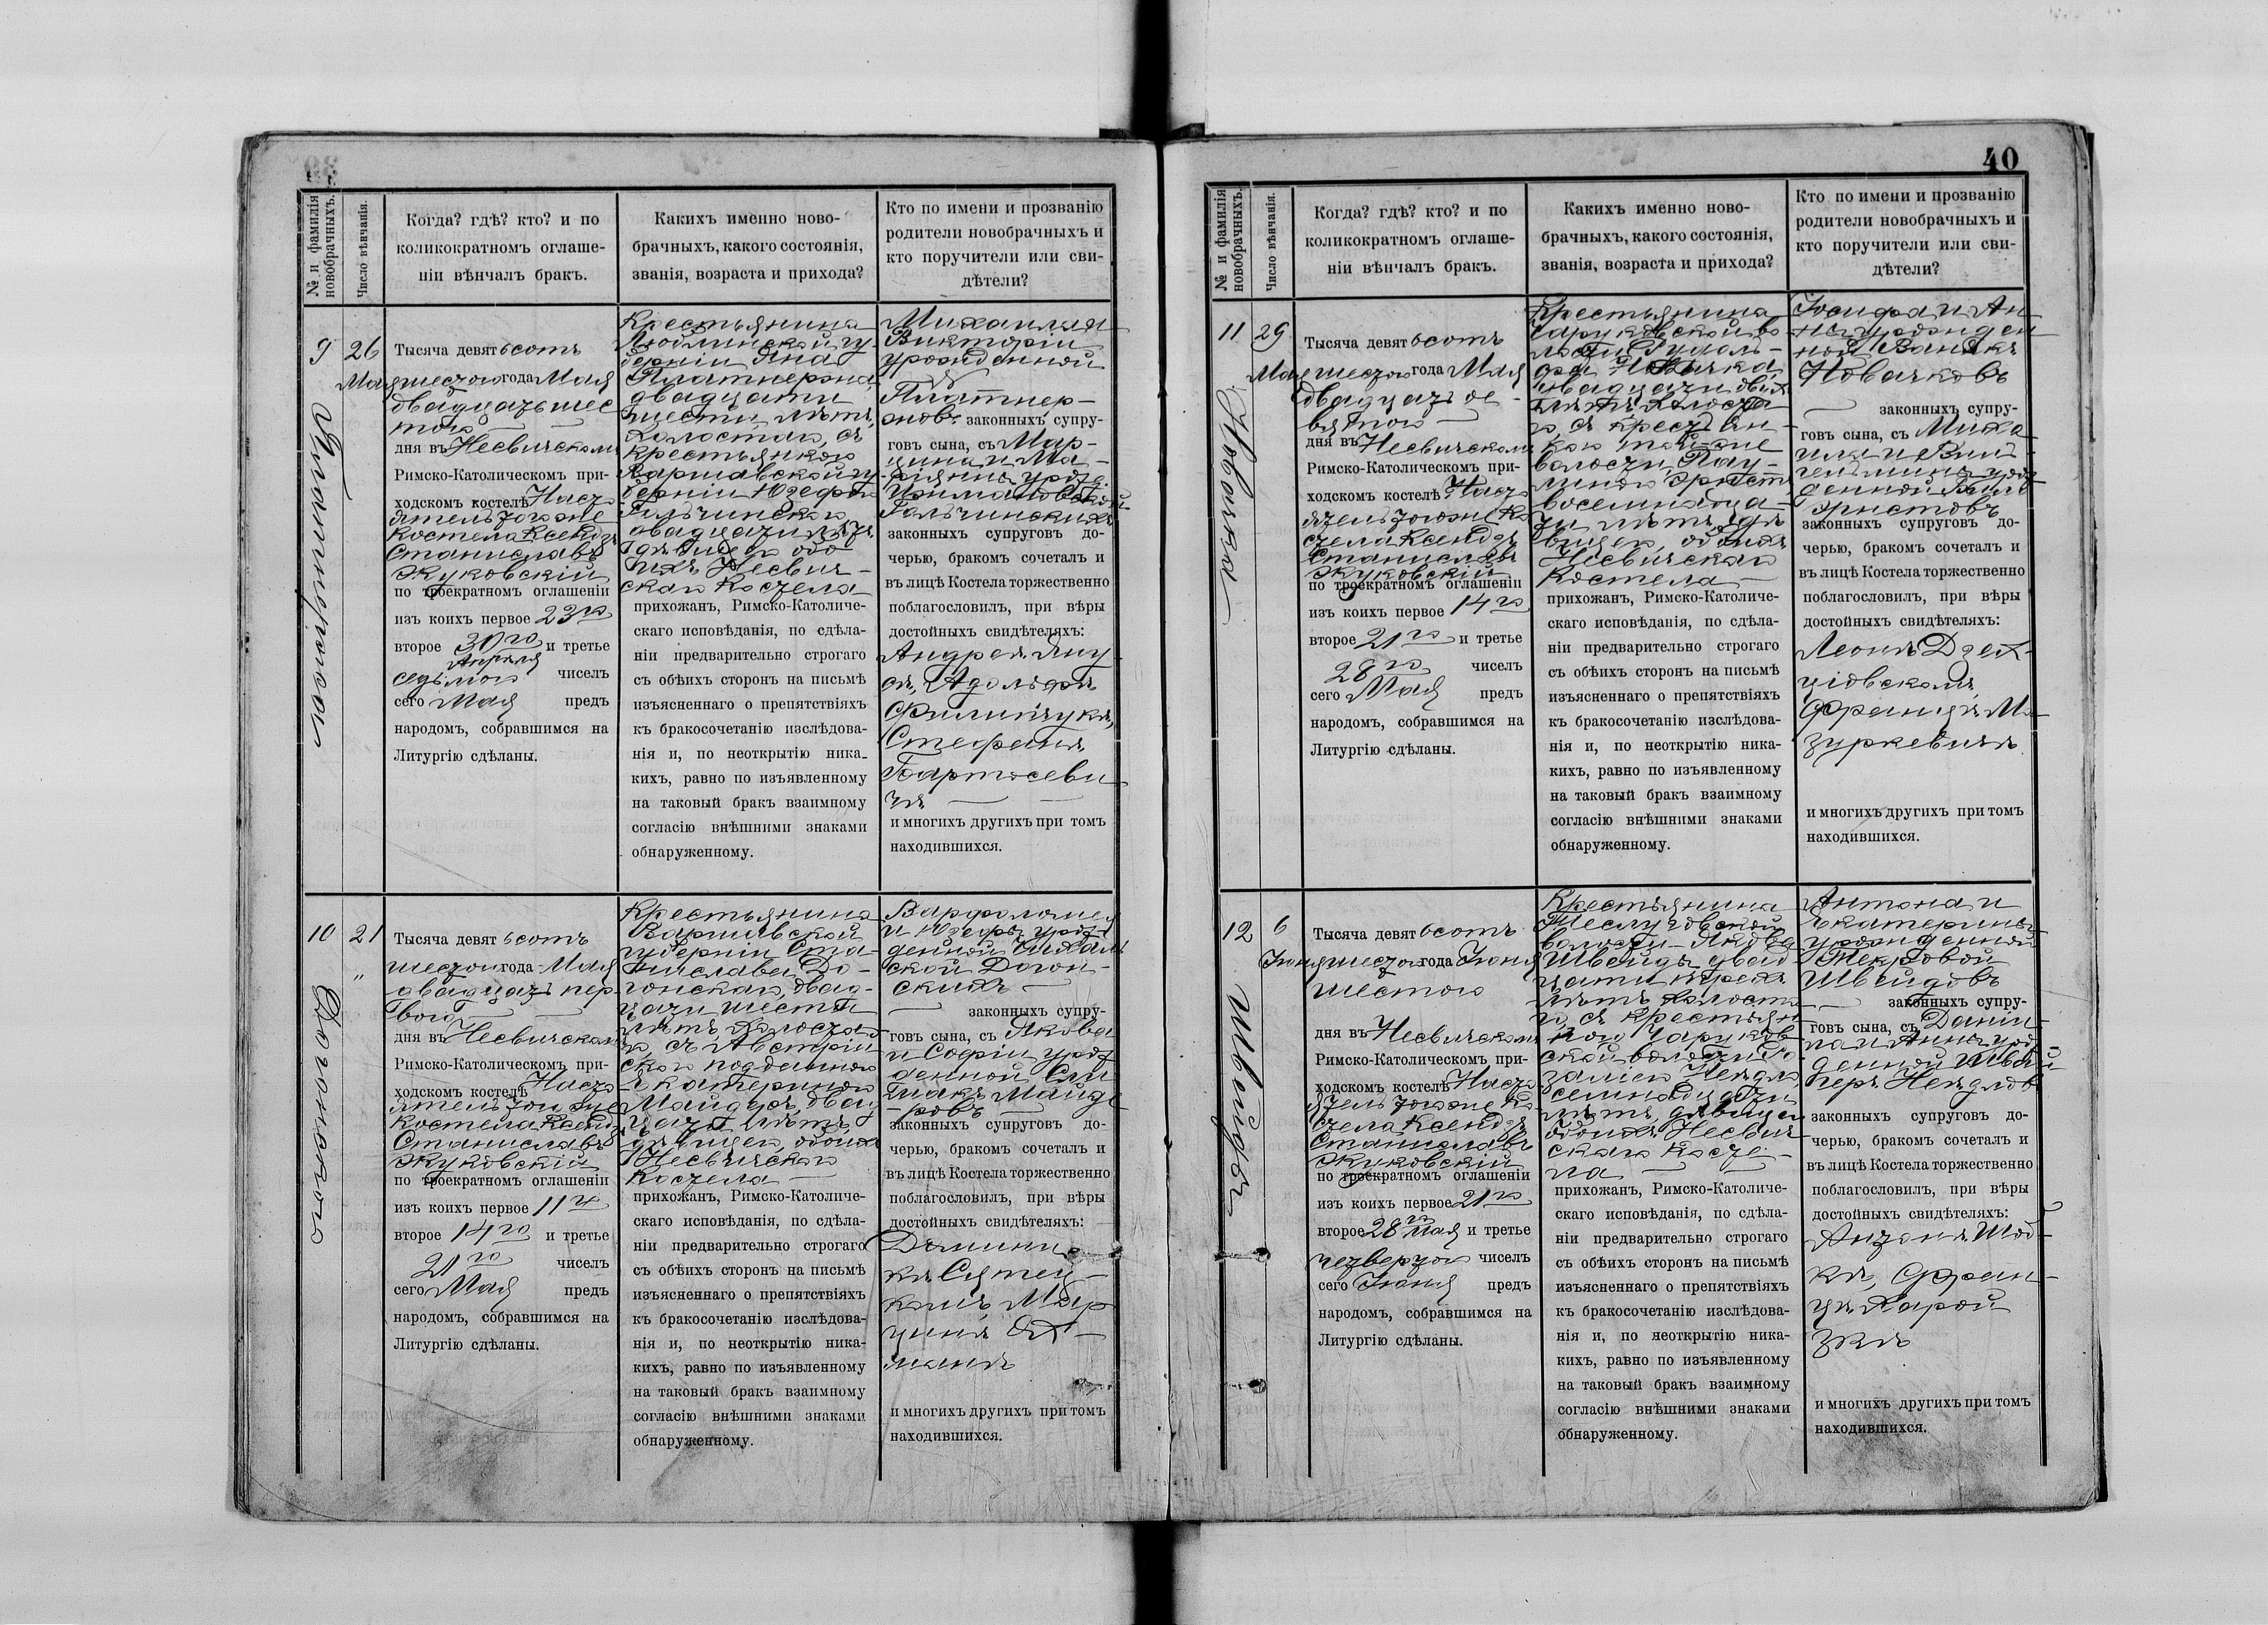 № и фамилія новобрачныхъ.
Число вѣнчанія.
Когда? гдѣ? кто? и по
коликократномъ оглаше-
ніи вѣнчалъ бракъ.
Какихъ именно ново-
брачныхъ, какого состоянія,
званія, возраста и прихода?
Кто по имени и прозванію
родители новобрачныхъ и
кто поручители или сви-
дѣтели?
9
26
Мая
Тысяча девятьсотъ
шестого года Мая
двадцать шес
того
дня въ Несвичскомъ
Римско-Католическомъ при-
ходскомъ костелѣ Насто
ятель того же
костела Ксендзъ
Станиславъ
Жуковскій
по троекратномъ оглашеніи
изъ коихъ первое 23го
второе 30го и третье
Апрѣля
седьмого чиселъ
сего Мая предъ
народомъ, собравшимся на
Литургію сдѣланы.
Крестьянина
Люблинской гу-
берніи Яна
Платнержна
двадцати
шести лѣтъ,
холостого, съ
крестьянкою
Варшавской гу-
берніи Юзефою
двадцати лѣтъ
дѣвицею обо
ихъ Несвич-
скаго костела
прихожанъ, Римско-Католиче-
скаго исповѣданія, по сдѣла-
ніи предварительно строгаго
съ обѣихъ сторонъ на письмѣ
изъясненнаго о препятствіяхъ
къ бракосочетанію изслѣдова-
нія и, по неоткрытію ника-
кихъ, равно по изъявленному
на таковый бракъ взаимному
согласію внѣшними знаками
обнаруженному.
Михаила и
Викторіи
урожденной
Платнер-
жновъ законныхъ супру-
говъ сына, съ Мар-
цина и Ма-
ріянны урожд.
Гальчинскихъ
законныхъ супруговъ до-
черью, бракомъ сочеталъ и
въ лицѣ Костела торжественно
поблагословилъ, при вѣры
достойныхъ свидѣтеляхъ:
Андрея Яну
ся, Адольфа
Филипчука,
Стефана
Бартосеви
ча
и многихъ другихъ при томъ
находившихся.
10
21
"
Догонского
Тысяча девятьсотъ
шестого года Мая
двадцать пер-
вого
дня въ Несвичскомъ
Римско-Католическомъ при-
ходскомъ костелѣ Насто
ятель того же
костела Ксендзъ
Станиславъ
Жуковскій
по троекратномъ оглашеніи
изъ коихъ первое 11го
второе 14го и третье
21го чиселъ
сего Мая предъ
народомъ, собравшимся на
Литургію сдѣланы.
Крестьянина
Варшавской
губерніи Ста-
нислава До-
гонского, двад-
цати шести
лѣтъ, холосто
го, съ Австрій
ской подданною
Екатериною
Майдеръ, двад
цати лѣтъ,
дѣвицею, обоихъ
Несвичскаго
костела
прихожанъ, Римско-Католиче-
скаго исповѣданія, по сдѣла-
ніи предварительно строгаго
съ обѣихъ сторонъ на письмѣ
изъясненнаго о препятствіяхъ
къ бракосочетанію изслѣдова-
нія и, по неоткрытію ника-
кихъ, равно по изъявленному
на таковый бракъ взаимному
согласію внѣшними знаками
обнаруженному.
Варфоломея
и Юзефы урож-
денной
Догон-
скихъ
законныхъ супру-
говъ сына, съ Якова
и Софіи урож
денной
Майде
-ровъ
законныхъ супруговъ до-
черью, бракомъ сочеталъ и
въ лицѣ Костела торжественно
поблагословилъ, при вѣры
достойныхъ свидѣтеляхъ:
Домини
ка
Мар
цина
и многихъ другихъ при томъ
находившихся.
40
№ и фамилія новобрачныхъ.
Число вѣнчанія.
Когда? гдѣ? кто? и по
коликократномъ оглаше-
ніи вѣнчалъ бракъ.
Какихъ именно ново-
брачныхъ, какого состоянія,
званія, возраста и прихода?
Кто по имени и прозванію
родители новобрачныхъ и
кто поручители или сви-
дѣтели?
11
29
Мая
Новачка
Тысяча девятьсотъ
шестого года Мая
двадцать де-
вятого
дня въ Несвичскомъ
Римско-Католическомъ при-
ходскомъ костелѣ Насто
ятель того же ко
стела Ксендзъ
Станиславъ
Жуковскій
по троекратномъ оглашеніи
изъ коихъ первое 14го
второе 21го и третье
28го чиселъ
сего Мая предъ
народомъ, собравшимся на
Литургію сдѣланы.
Крестьянина
Чаруковской во
лости Рудоль-
фа Новачка
двадцати двухъ
лѣтъ, холосто
го, съ крестьян-
кою той-же
волости Пау-
линою Эрнстъ
восемнадца-
ти лѣтъ, дѣ
вицею, обоихъ
Несвичскаго
костела
прихожанъ, Римско-Католиче-
скаго исповѣданія, по сдѣла-
ніи предварительно строгаго
съ обѣихъ сторонъ на письмѣ
изъясненнаго о препятствіяхъ
къ бракосочетанію изслѣдова-
нія и, по неоткрытію ника-
кихъ, равно по изъявленному
на таковый бракъ взаимному
согласію внѣшними знаками
обнаруженному.
Іосифа и Ан
ны урожден
ной
Новачковъ
законныхъ супру-
говъ сына, съ Миха
ила и Виль
гельмины урож
денной
Эрнстовъ
законныхъ супруговъ до-
черью, бракомъ сочеталъ и
въ лицѣ Костела торжественно
поблагословилъ, при вѣры
достойныхъ свидѣтеляхъ:
Леона
Франца Ма
зуркевича
и многихъ другихъ при томъ
находившихся.
12
6
Іюня
Швейда
Тысяча девятьсотъ
шестого года Іюня
шестого
дня въ Несвичскомъ
Римско-Католическомъ при-
ходскомъ костелѣ Насто
ятель того же ко
стела Ксендзъ
Станиславъ
Жуковскій
по троекратномъ оглашеніи
изъ коихъ первое 21го
второе 28го Мая и третье
четвертого чиселъ
сего Іюня предъ
народомъ, собравшимся на
Литургію сдѣланы.
Крестьянина
Теслуговской
волости Якова
Швейда, двад
цати трехъ
лѣтъ, холосто
го, съ крестьян
кою Чаруков
ской волости Ро
заліею
семнадцати
лѣтъ, дѣвицею
обоихъ Несвич
скаго косте-
ла
прихожанъ, Римско-Католиче-
скаго исповѣданія, по сдѣла-
ніи предварительно строгаго
съ обѣихъ сторонъ на письмѣ
изъясненнаго о препятствіяхъ
къ бракосочетанію изслѣдова-
нія и, по неоткрытію ника-
кихъ, равно по изъявленному
на таковый бракъ взаимному
согласію внѣшними знаками
обнаруженному.
Антона и
Екатерины
урожденной
Швейдовъ
законныхъ супру-
говъ сына, съ Даніи-
ла и Анны урож
денной
законныхъ супруговъ до-
черью, бракомъ сочеталъ и
въ лицѣ Костела торжественно
поблагословилъ, при вѣры
достойныхъ свидѣтеляхъ:
Антона
Фран-
ца
и многихъ другихъ при томъ
находившихся.